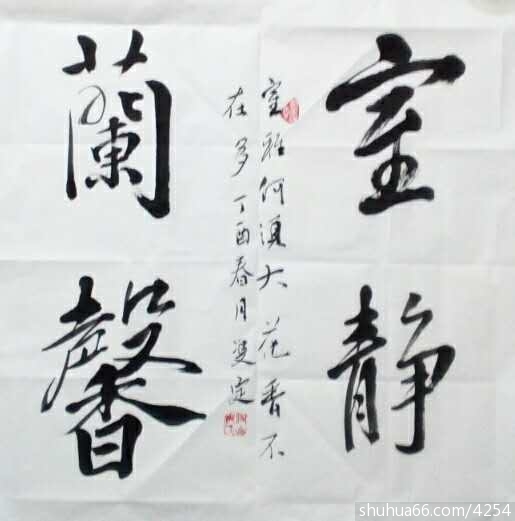 室靜
蘭馨
室雅何須大 花香不
在多 丁酉春月
shuhua66.com/4254